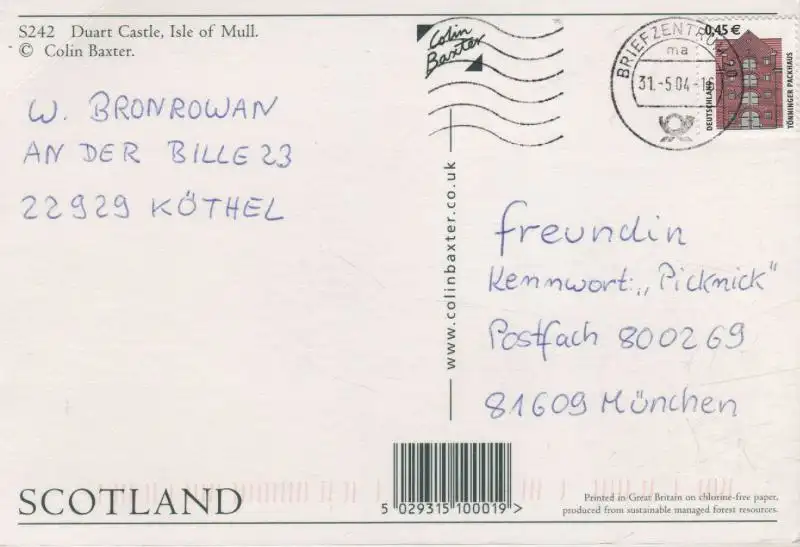 S242 Duart Castle, Isle of Mull.
© Colin Baxter.
Colin
Baxter
BRIEFZENTRUM
ma
31.-5.04-16
0,45 €
DEUTSCHLAND
TÖNNINGER PACKHAUS
W. BRONROWAN
AN DER BILLE 23
22929 KÖTHEL
www.colinbaxter.co.uk
freundin
Kennwort: „Picknick"
Postfach 800269
81609 München
SCOTLAND
5 029315 100019 >
Printed in Great Britain on chlorine-free paper,
produced from sustainable managed forest resources.